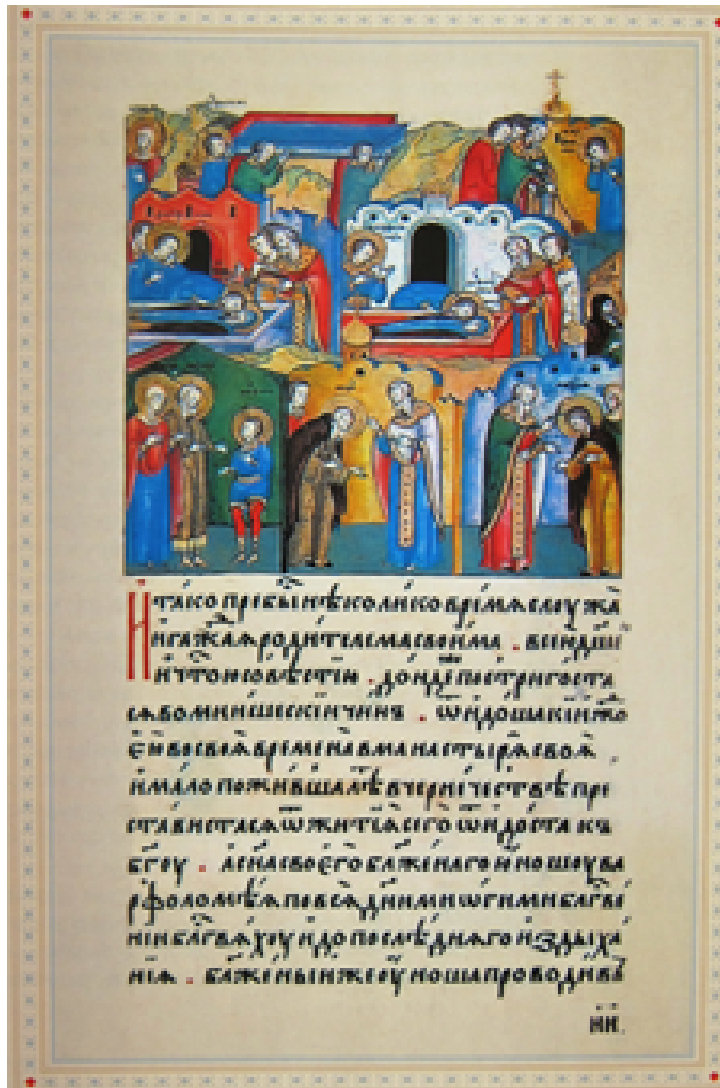 И҆ та́ко пребы́ нѣ́колико вре́мѧ слоужа̀
и҆ гажⷣаѧ роди́телема свои́ма . все́ю дш҃е́ю
и҆ чтⷭ҇ою со́вѣстїю . до́ндеⷤ постриго́ста
сѧ во мни́шескїи чи́нъ . ѿидо́ша кі́иждо
є҆ю̀ во своѧ̀ времена̀ в манастырѧ̀ своѧ̀ ,
и҆ ма́ло пожи́вша лѣⷮ в черни́чествѣ пре
ста́вистасѧ ѿ житїѧ̀ сего̀ ѿидо́ста къ
бг҃оу . а҆ сн҃а своего̀ блаже́наго ю҆ношоу ва
рѳоломѣ́ѧ по всѧ̀ дн҃и мно́гими блгⷭ҇ве
нїи блгⷭ҇вѧ́хоу и҆ до послѣ́днѧго и҆здыха́
нїѧ . блаже́ныи же ю҆́ноша проводи́въ
ни .